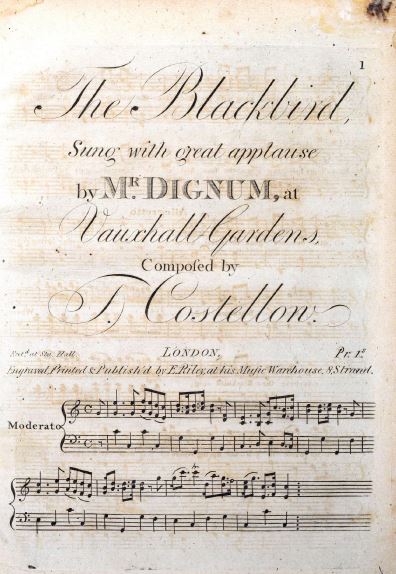 1
The Blackbird,
Sung with great applause
by Mr. DIGNUM, at
Vauxhall Gardens,
Compoſed by
T. Costellow.
Ent.d at Sta. Hall
LONDON,
Pr. 1s
Engraved, Printed & Publiſh'd by E. Riley, at his Muſic Warehouse, 8, Strand.
Moderato